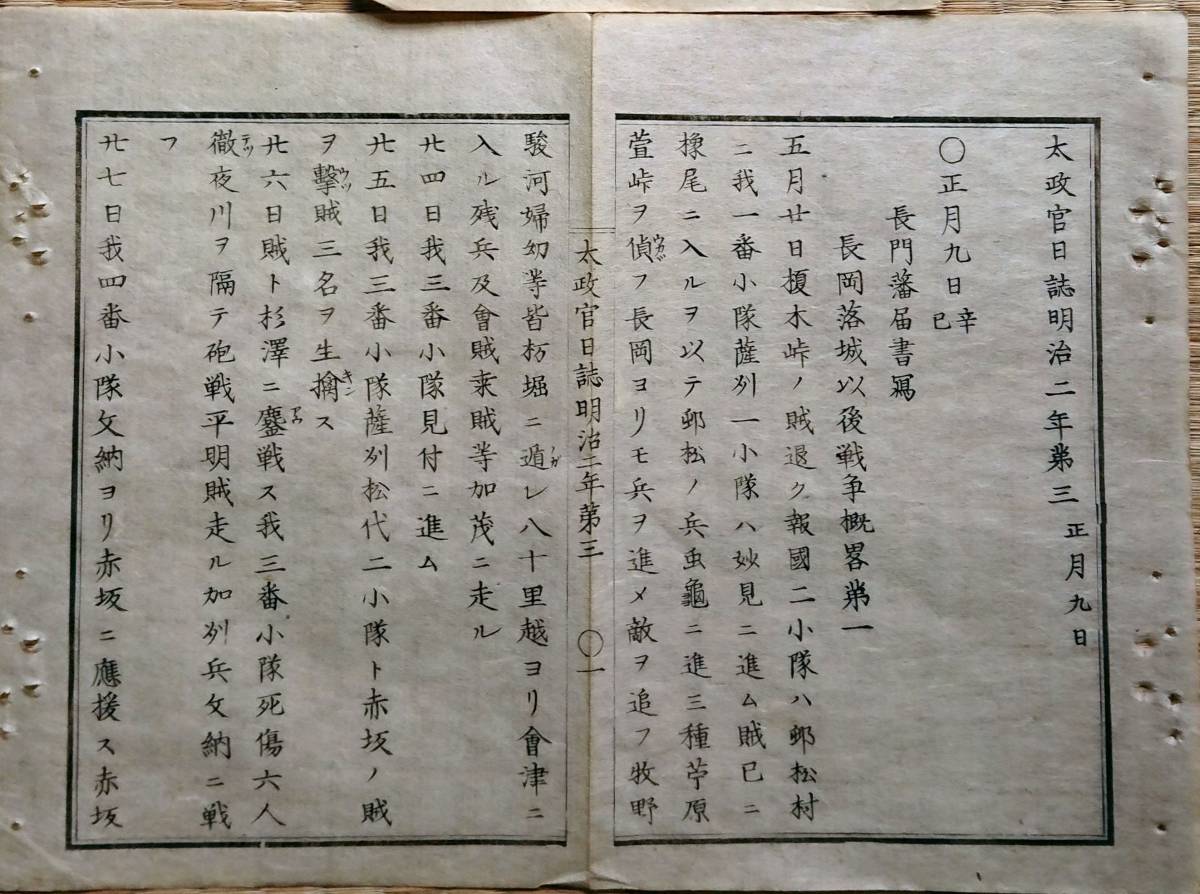 太政官日誌明治二年第三 正月九日
〇正月九日辛巳
長門藩届書寫
長岡落城以後戦争概畧第一
五月廿日榎木峠ノ賊退ク報國二小隊ハ郷松村
ニ我一番小隊薩州一小隊ハ妙見ニ進ム賊已ニ
橡尾ニ入ルヲ以テ郷松ノ兵虫龜ニ進三種苧原
萱峠ヲ偵フ長岡ヨリモ兵ヲ進メ敵ヲ追フ牧野
太政官日誌明治二年第三 〇一
駿河婦幼等皆栃堀ニ遁レ八十里越ヨリ會津ニ
入ル残兵及會賊桒賊等加茂ニ走ル
廿四日我三番小隊見付ニ進ム
廿五日我三番小隊薩州松代二小隊ト赤坂ノ賊
ヲ擊賊三名ヲ生擒ス
廿六日賊ト杉澤ニ鏖戦ス我三番小隊死傷六人
徹夜川ヲ隔テ砲戦平明賊走ル加州兵文納ニ戦
フ
廿七日我四番小隊文納ヨリ赤坂ニ應援ス赤坂